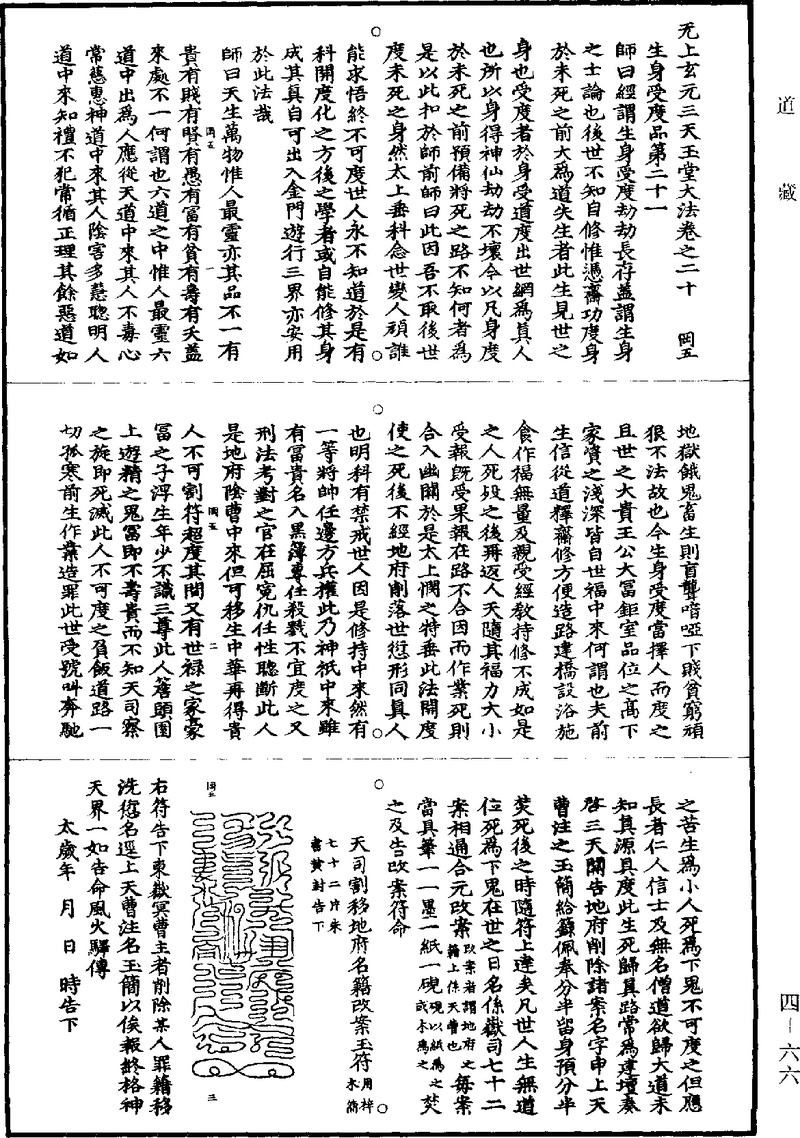 道藏
四—六六
无上玄元三天玉堂大法卷之二十 岡五
生身受度品第二十一
師曰經謂生身受度劫劫長存蓋謂生身
之士論也後世不知自修惟憑齋功度身
於未死之前大為道失生者此生見世之
身也受度者於身受道度出世網為真人
也所以身得神仙劫劫不壞今以凡身度
於未死之前預備將死之路不知何者為
是以此扣於師前師曰此因吾不取後世
度未死之身然太上垂科念世變人頑誰
能求悟終不可度世人永不知道於是有
科開度化之方後之學者或自能修其身
成其真自可出入金門遊行三界亦安用
於此法哉
師曰天生萬物惟人最靈亦其品不一有
貴有賤有賢有愚有富有貧有壽有夭蓋
岡五
來處不一何謂也六道之中惟人最靈六
道中出為人應從天道中來其人不毒心
常慈惠神道中來其人陰害多慧聰明人
道中來知禮不犯常循正理其餘惡道如
地獄餓鬼畜生則盲聾喑啞下賤貧窮頑
狠不法故也今生身受度當擇人而度之
且世之大貴王公大富鉅室品位之高下
家資之淺深皆自世福中來何謂也夫前
生信從道釋齋修方便造路建橋設浴施
食作福無量及親受經教持修不成如是
之人死歿之後再返人天隨其福力大小
受報既受果報在路不合因而作業死則
合入幽關於是太上憫之特垂此法開度
使之死後不經地府削落世愆形同真人
也明科有禁戒世人因是修持中來然有
一等將帥任邊方兵權此乃神祇中來雖
有富貴名入黑簿專任殺戮不宜度之又
刑法考對之官在屈寃仇任性聽斷此人
是地府陰曹中來但可移生中華再得貴
岡五 二
人不可割符超度其間又有世祿之家豪
富之子浮生年少不識三尊此人簷頭園
上遊精之鬼富即不壽貴而不知天司察
之旋即死滅此人不可度之負飯道路一
切孤寒前生作業造罪此世受號叫奔馳
之苦生為小人死為下鬼不可度之但應
長者仁人信士及無名僧道欲歸大道未
知真源具度此生死歸真路常為建壇奏
啓三天關告地府削除諸案名字申上天
曹注之玉簡給籙佩奉分半留身預分半
焚死後之時隨符上達矣凡世人生無道
位死為下鬼在世之日名係嶽司七十二
案相通合元改案改案者謂地府之籍上係天曹也每案
當具筆一墨一紙一硯硯以紙為之或木為之焚
之及告改案符命
天司割移地府名籍改案玉符用梓木簡
七十二片朱書黃封告下
岡五 三
右符告下東嶽冥曹主者削除某人罪籍移
洗愆名逕上天曹注名玉簡以俟報終格神
天界一如告命風火驛傳
太歲年 月 日 時告下